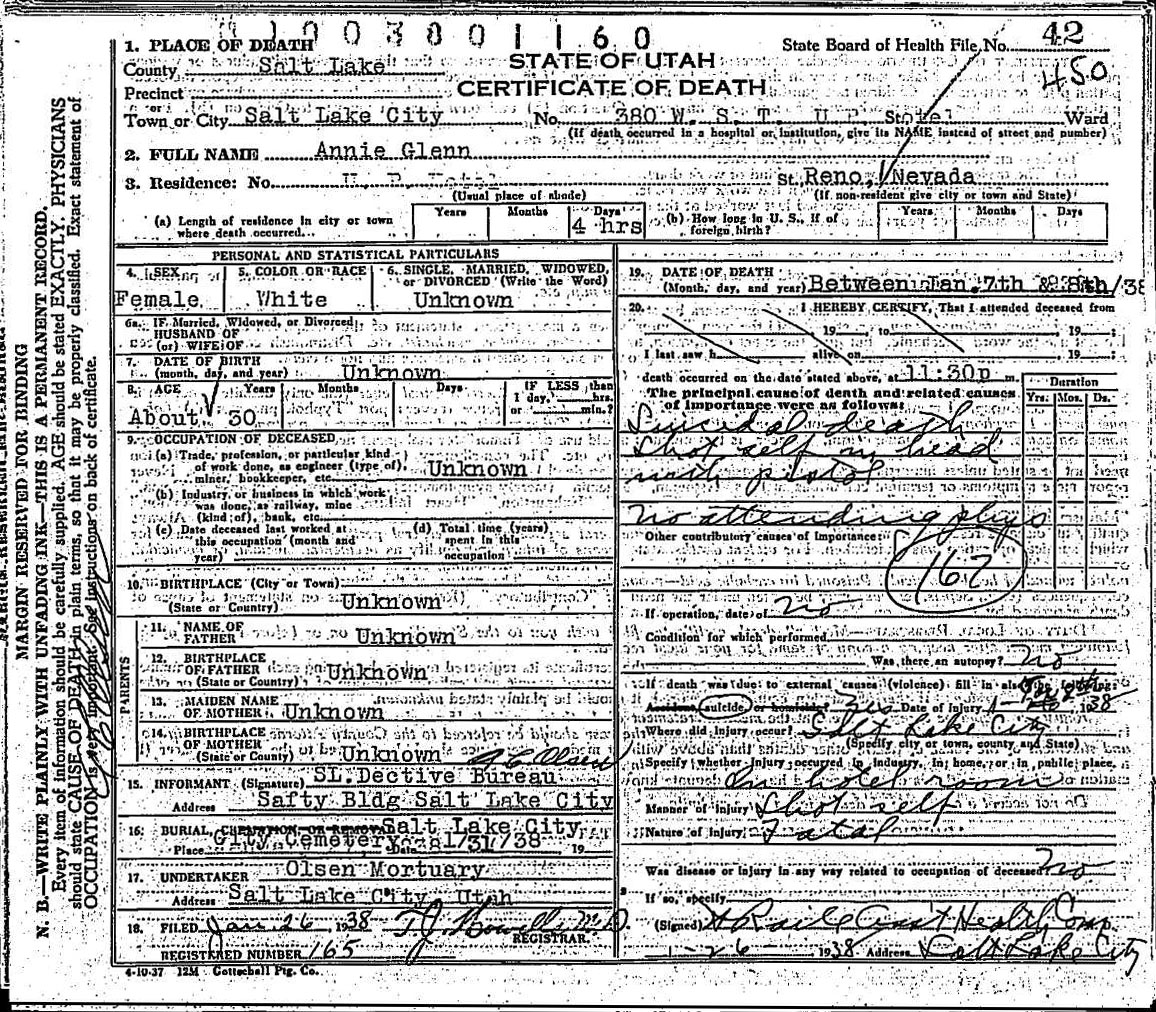 1003801160
1. PLACE OF DEATH
State Board of Health File No. 42
County Salt Lake
STATE OF UTAH
450
Precinct
CERTIFICATE OF DEATH
or
Town or City Salt Lake City No. 380 W. S. T. U P Ward
(If death occurred in a hospital or institution, give its NAME instead of street and number)
2. FULL NAME Annie Glenn
3. Residence: No. U. P. Hotel St. Reno, Nevada
(Usual place of abode) (If non-resident give city or town and State)
(a) Length of residence in city or town where death occurred Years Months Days 4 hrs
(b) How long in U. S., if of foreign birth? Years Months Days
PERSONAL AND STATISTICAL PARTICULARS
4. SEX Female
5. COLOR OR RACE White
6. SINGLE, MARRIED, WIDOWED, or DIVORCED (Write the Word) Unknown
6a. IF Married, Widowed, or Divorced
HUSBAND OF
(or) WIFE OF
7. DATE OF BIRTH
(month, day, and year) Unknown
8. AGE Years Months Days IF LESS than 1 day, hrs. or min.?
About 30
9. OCCUPATION OF DECEASED
(a) Trade, profession, or particular kind
of work done, as engineer (type of),
miner, bookkeeper, etc. Unknown
(b) Industry or business in which work
was done, as railway, mine
(kind of), bank, etc.
(c) Date deceased last worked at
this occupation (month and
year)
(d) Total time (years)
spent in this
occupation
10. BIRTHPLACE (City or Town)
(State or Country) Unknown
PARENTS
11. NAME OF
FATHER Unknown
12. BIRTHPLACE
OF FATHER
(State or Country) Unknown
13. MAIDEN NAME
OF MOTHER Unknown
14. BIRTHPLACE
OF MOTHER
(State or County) Unknown
Olsen
15. INFORMANT (Signature) SL. Dective Bureau
Address Safty Bldg Salt Lake City
16. BURIAL, CREMATION, OR REMOVAL Salt Lake City
Place City Cemetery Date 1/31/38 19
17. UNDERTAKER Olsen Mortuary
Address Salt Lake City Utah
18. FILED Jan. 26 1938 T. J. Howells M.D.
REGISTRAR.
REGISTERED NUMBER 165
4-10-37 12M Gottschall Ptg. Co.
19. DATE OF DEATH
(Month, day, and year) Between Jan. 7th & 8th/38
20. I HEREBY CERTIFY, That I attended deceased from
19 , to 19
I last saw h alive on , 19
death occurred on the date stated above, at 11:30p m.
Duration
The principal cause of death and related causes
of importance were as follows: Yrs. Mos. Ds.
Suicidal death
Shot self in head
with pistol
No attending phys
Other contributory causes of Importance:
162
If operation, date of No
Condition for which performed
Was there an autopsy? No
If death was due to external causes (violence) fill in also
Accident, suicide or homicide? Yes Date of Injury 1938
Where did injury occur? Salt Lake City
(Specify city or town, county and State)
Specify whether injury occurred in industry, in home, or in public place,
In hotel room
Manner of injury Shot self
Nature of injury Fatal
Was disease or injury in any way related to occupation of deceased? No
If so, specify
(Signed) Health Comp.
1-26 1938 Address Salt Lake City
MARGIN RESERVED FOR BINDING
N. B.—WRITE PLAINLY WITH UNFADING INK—THIS IS A PERMANENT RECORD.
Every item of information should be carefully supplied. AGE should be stated EXACTLY. PHYSICIANS
should state CAUSE OF DEATH in plain terms, so that it may be properly classified. Exact statement of
OCCUPATION is very important. See Instructions on back of certificate.